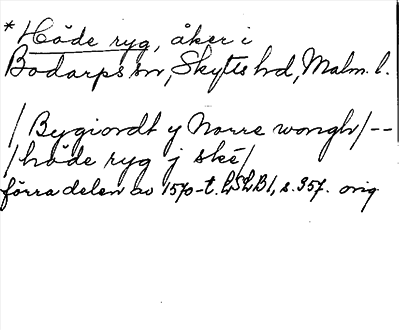 * Höde ryg, åker i
Bodarps sn, Skytts hd, Malm. l.
/ Bygiordt y Norre wongh/--
/ höde ryg j ské/
förra delen av 1570-t. LSLB1, s. 357. orig